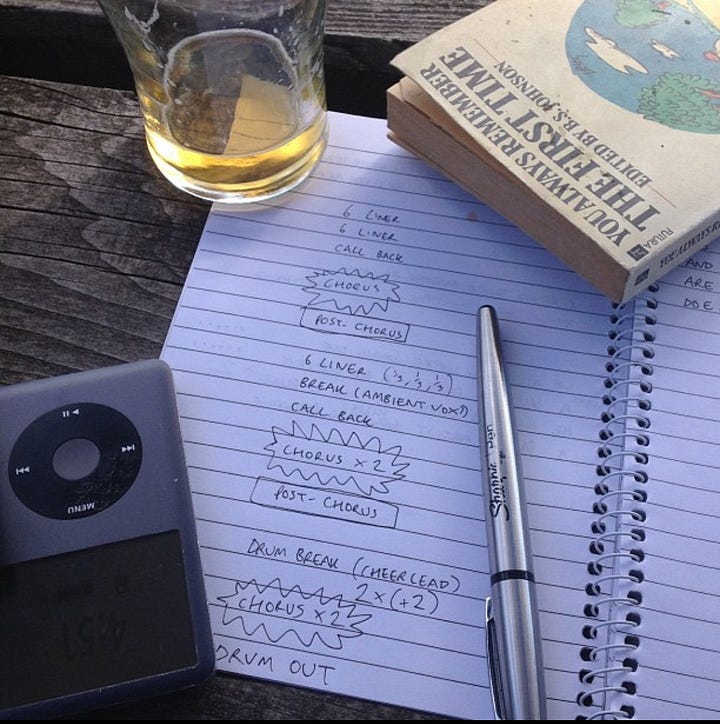 YOU ALWAYS REMEMBER
THE FIRST TIME
EDITED BY B.S. JOHNSON
FUTURA
YOU ALWAYS RE
6 LINER
6 LINER
CALL BACK
CHORUS
POST-CHORUS
6 LINER (⅓, ⅓, ⅓)
BREAK (AMBIENT VOX)
CALL BACK
CHORUS x 2
POST-CHORUS
DRUM BREAK (CHEERLEAD)
2 x (+2)
CHORUS x 2
DRUM OUT
AND
ARE
DOE
Sharpie pen
MENU
4:51